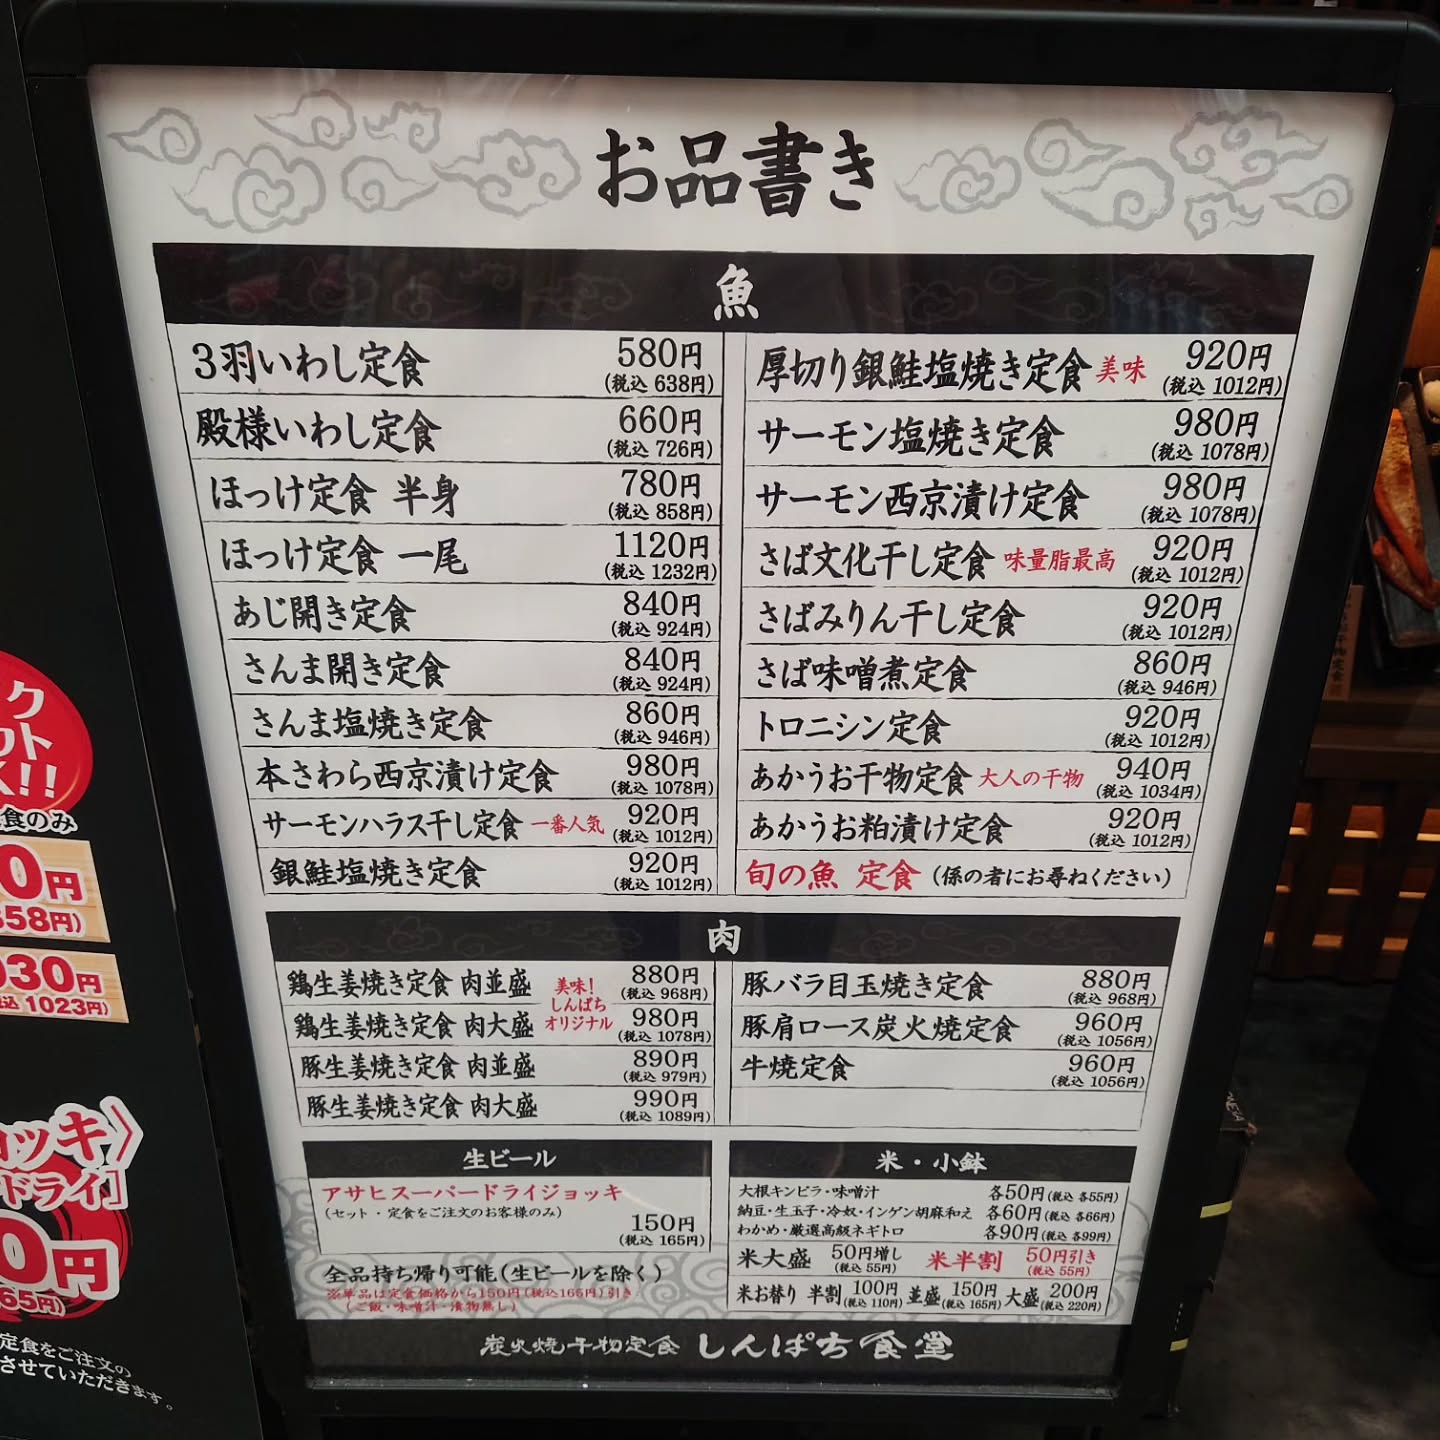 お品書き
魚
3羽いわし定食 580円
(税込 638円)
殿様いわし定食 660円
(税込 726円)
ほっけ定食 半身 780円
(税込 858円)
ほっけ定食 一尾 1120円
(税込 1232円)
あじ開き定食 840円
(税込 924円)
さんま開き定食 840円
(税込 924円)
さんま塩焼き定食 860円
(税込 946円)
本さわら西京漬け定食 980円
(税込 1078円)
サーモンハラス干し定食 一番人気 920円
(税込 1012円)
銀鮭塩焼き定食 920円
(税込 1012円)
厚切り銀鮭塩焼き定食 美味 920円
(税込 1012円)
サーモン塩焼き定食 980円
(税込 1078円)
サーモン西京漬け定食 980円
(税込 1078円)
さば文化干し定食 味量脂最高 920円
(税込 1012円)
さばみりん干し定食 920円
(税込 1012円)
さば味噌煮定食 860円
(税込 946円)
トロニシン定食 920円
(税込 1012円)
あかうお干物定食 大人の干物 940円
(税込 1034円)
あかうお粕漬け定食 920円
(税込 1012円)
旬の魚 定食 (係の者にお尋ねください)
肉
鶏生姜焼き定食 肉並盛 880円
(税込 968円)
鶏生姜焼き定食 肉大盛 980円
(税込 1078円)
美味!
しんぱち
オリジナル
豚生姜焼き定食 肉並盛 890円
(税込 979円)
豚生姜焼き定食 肉大盛 990円
(税込 1089円)
豚バラ目玉焼き定食 880円
(税込 968円)
豚肩ロース炭火焼定食 960円
(税込 1056円)
牛焼定食 960円
(税込 1056円)
生ビール
アサヒスーパードライジョッキ
(セット・定食をご注文のお客様のみ)
150円
(税込 165円)
全品持ち帰り可能(生ビールを除く)
※単品は定食価格から150円(税込165円)引き
(ご飯・味噌汁・漬物無し)
米・小鉢
大根キンピラ・味噌汁 各50円(税込 各55円)
納豆・生玉子・冷奴・インゲン胡麻和え 各60円(税込 各66円)
わかめ・厳選高級ネギトロ 各90円(税込 各99円)
米大盛 50円増し (税込 55円) 米半割 50円引き (税込 55円)
米お替り 半割 100円 (税込 110円) 並盛 150円 (税込 165円) 大盛 200円 (税込 220円)
炭火焼干物定食 しんぱち食堂
ク
ト
!!
食のみ
0円
858円)
930円
税込 1023円)
ョッキ〉
ドライ]
0円
65円)
定食をご注文の
させていただきます。